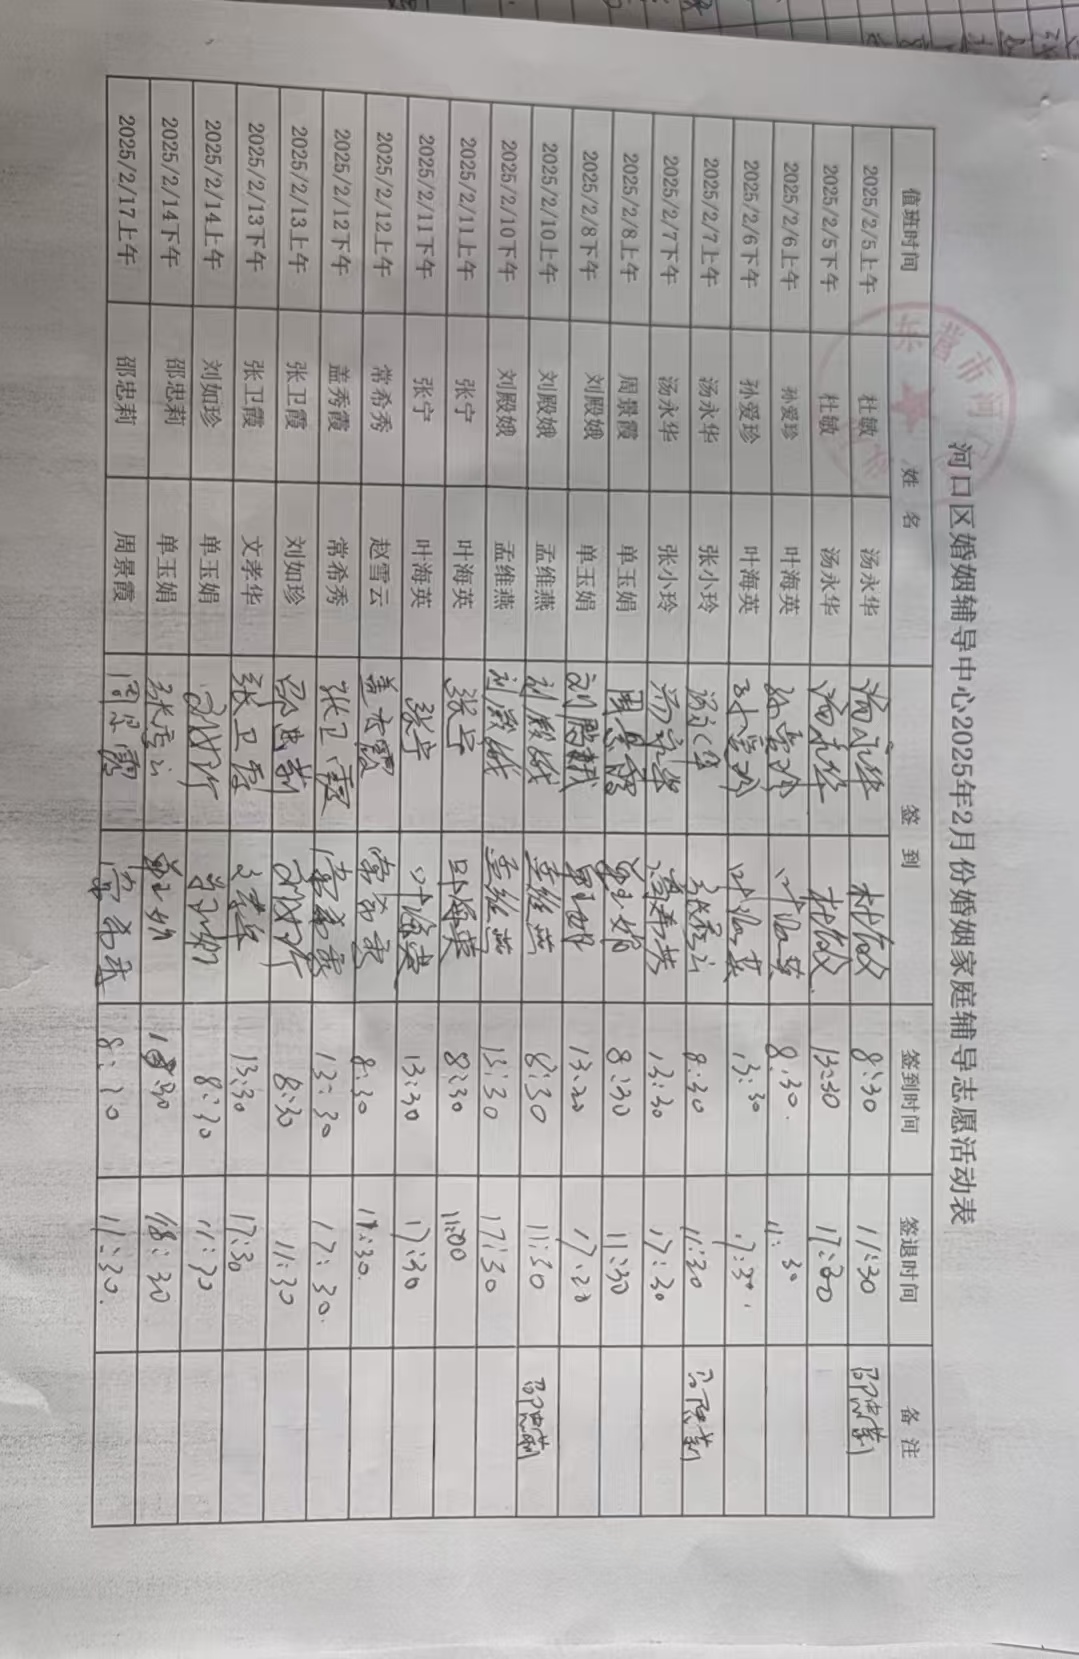 河口区婚姻辅导中心2025年2月份婚姻家庭辅导志愿活动表
值班时间 姓 名 签 到 签到时间 签退时间 备 注
2025/2/5上午 杜敏 汤永华 汤永华 杜敏 8:30 11:30 邵忠莉
2025/2/5下午 杜敏 汤永华 汤永华 杜敏 13:30 17:30
2025/2/6上午 孙爱珍 叶海英 孙爱珍 叶海英 8:30 11:30
2025/2/6下午 孙爱珍 叶海英 孙爱珍 叶海英 13:30 17:30
2025/2/7上午 汤永华 张小玲 汤永华 8:30 11:30 邵忠莉
2025/2/7下午 汤永华 张小玲 汤永华 13:30 17:30
2025/2/8上午 周景霞 单玉娟 周景霞 单玉娟 8:30 11:30
2025/2/8下午 刘殿娥 单玉娟 刘殿娥 单玉娟 13:20 17:20
2025/2/10上午 刘殿娥 孟维燕 刘殿娥 孟维燕 8:30 11:30 邵忠莉
2025/2/10下午 刘殿娥 孟维燕 刘殿娥 孟维燕 13:30 17:30
2025/2/11上午 张宁 叶海英 张宁 叶海英 8:30 11:00
2025/2/11下午 张宁 叶海英 张宁 叶海英 13:30 17:30
2025/2/12上午 常希秀 赵雪云 盖秀霞 常希秀 8:30 11:30
2025/2/12下午 盖秀霞 常希秀 张卫霞 常希秀 13:30 17:30
2025/2/13上午 张卫霞 刘如珍 邵忠莉 刘如珍 8:30 11:30
2025/2/13下午 张卫霞 文孝华 张卫霞 文孝华 13:30 17:30
2025/2/14上午 刘如珍 单玉娟 刘如珍 单玉娟 8:30 11:30
2025/2/14下午 邵忠莉 单玉娟 单玉娟
2025/2/17上午 邵忠莉 周景霞 周景霞 常希秀 8:30 11:30
东营市河